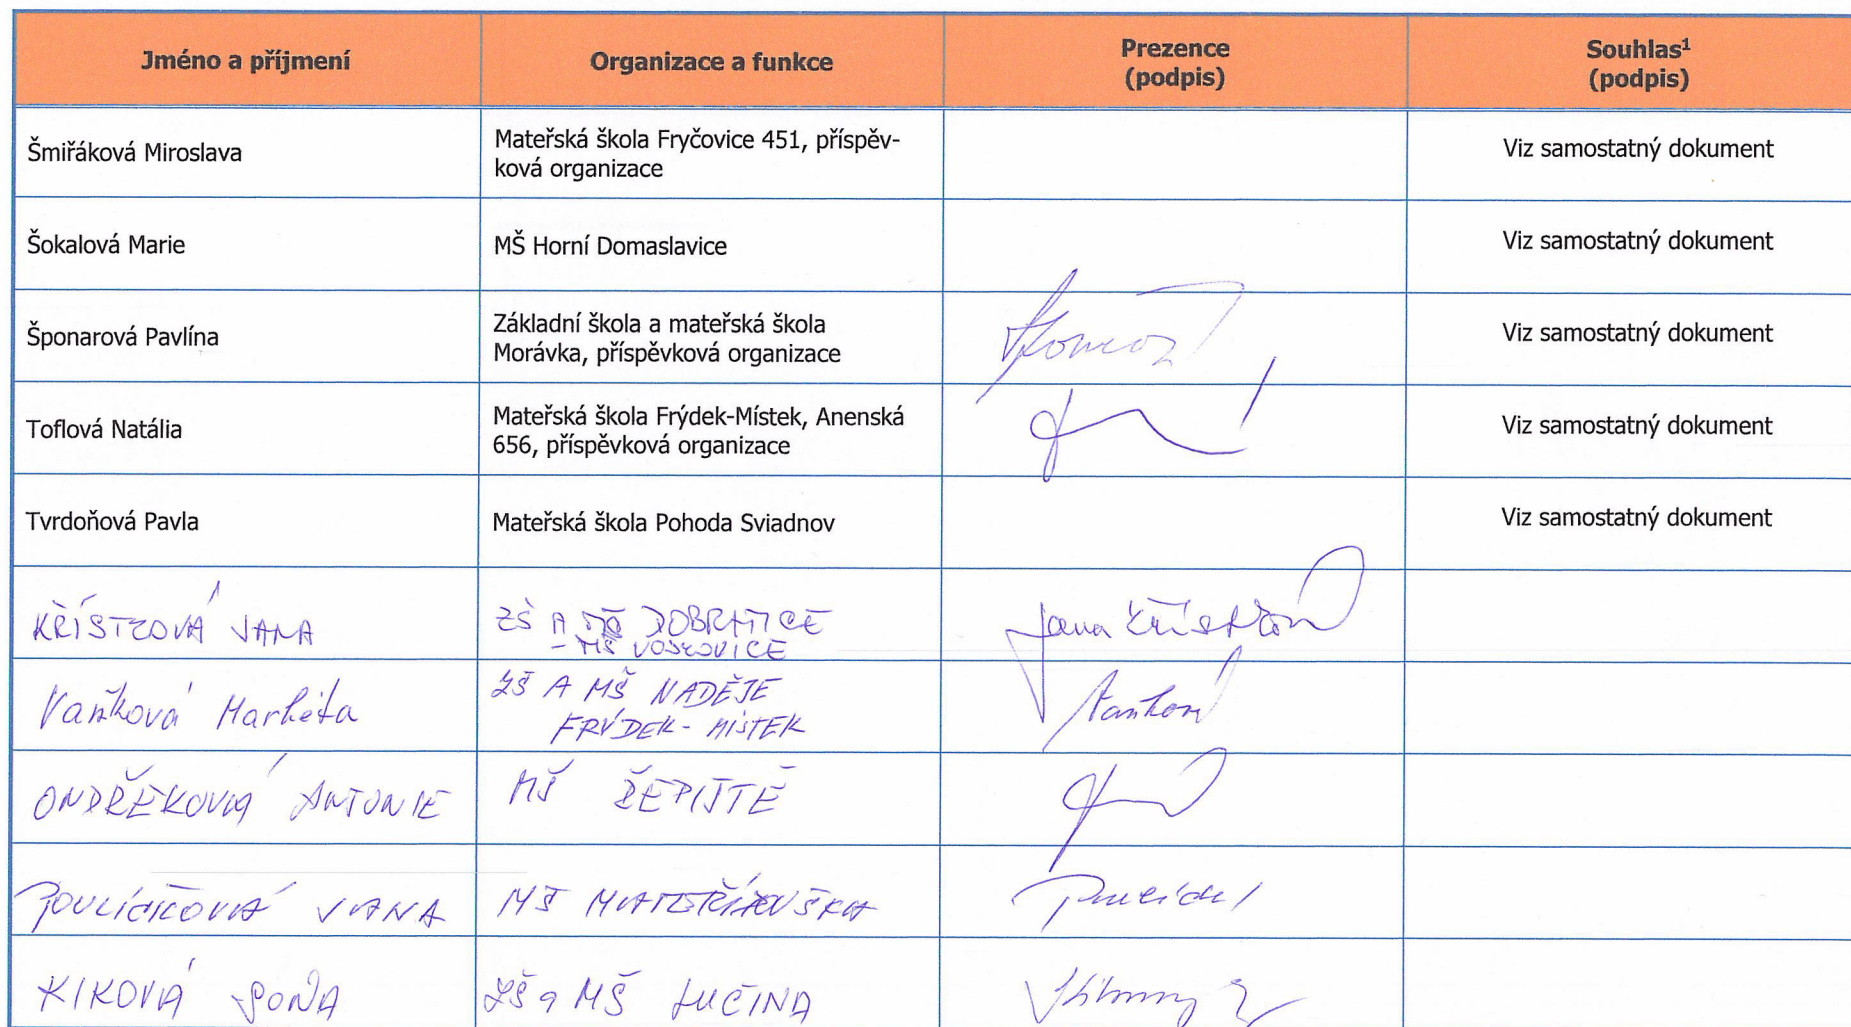 Jméno a příjmení
Organizace a funkce
Prezence
(podpis)
Souhlas¹
(podpis)
Šmiřáková Miroslava
Mateřská škola Fryčovice 451, příspěv-
ková organizace
Viz samostatný dokument
Šokalová Marie
MŠ Horní Domaslavice
Viz samostatný dokument
Šponarová Pavlína
Základní škola a mateřská škola
Morávka, příspěvková organizace
Viz samostatný dokument
Toflová Natália
Mateřská škola Frýdek-Místek, Anenská
656, příspěvková organizace
Viz samostatný dokument
Tvrdoňová Pavla
Mateřská škola Pohoda Sviadnov
Viz samostatný dokument
KŘÍSTKOVÁ JANA
ZŠ A MŠ DOBRATICE
- MŠ VOJKOVICE
Jana Křístková
Vaňková Markéta
ZŠ A MŠ NADĚJE
FRÝDEK-MÍSTEK
Vaňková
ANTONIE
MŠ ŘEPIŠTĚ
JANA
MŠ MATEŘÍDOUŠKA
KIKOVÁ SOŇA
ZŠ a MŠ LUČINA